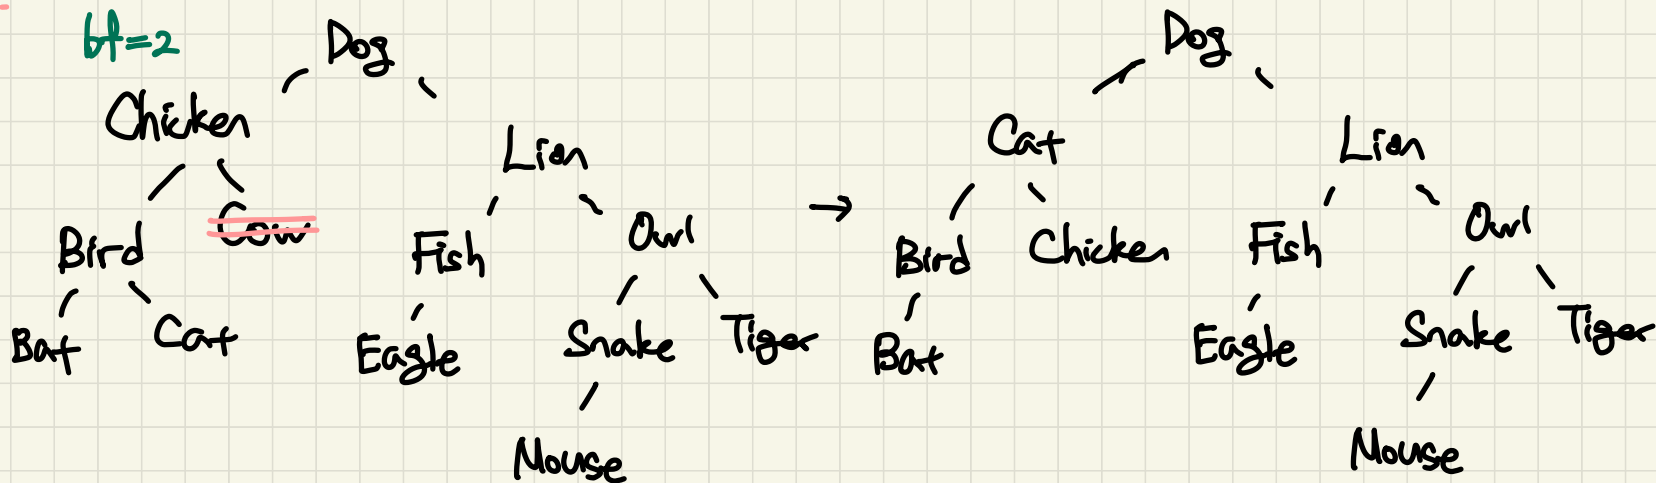 bf=2
Dog
Chicken
Lion
Bird
Cow
Fish
Owl
Bat
Cat
Eagle
Snake
Tiger
Mouse
→
Dog
Cat
Lion
Bird
Chicken
Fish
Owl
Bat
Eagle
Snake
Tiger
Mouse